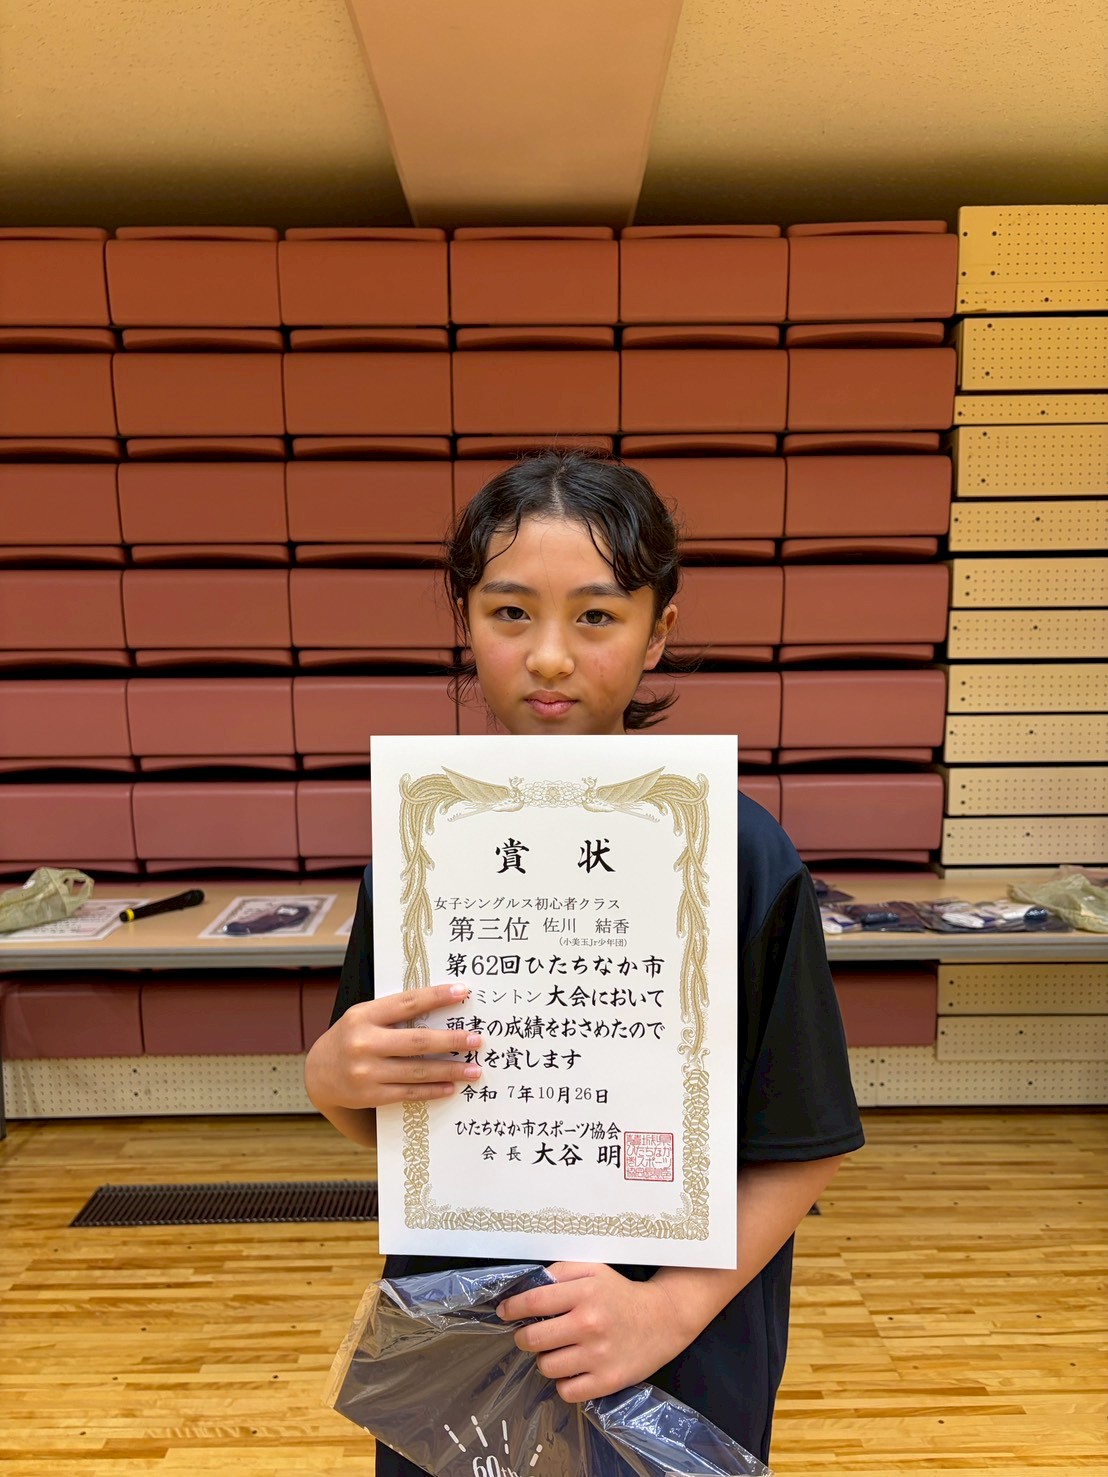 賞 状
女子シングルス初心者クラス
第三位 佐川 結香
(小美玉Jr少年団)
第62回ひたちなか市
ドミントン大会において
頭書の成績をおさめたので
これを賞します
令和 7年10月26日
ひたちなか市スポーツ協会
会 長 大谷 明
60th